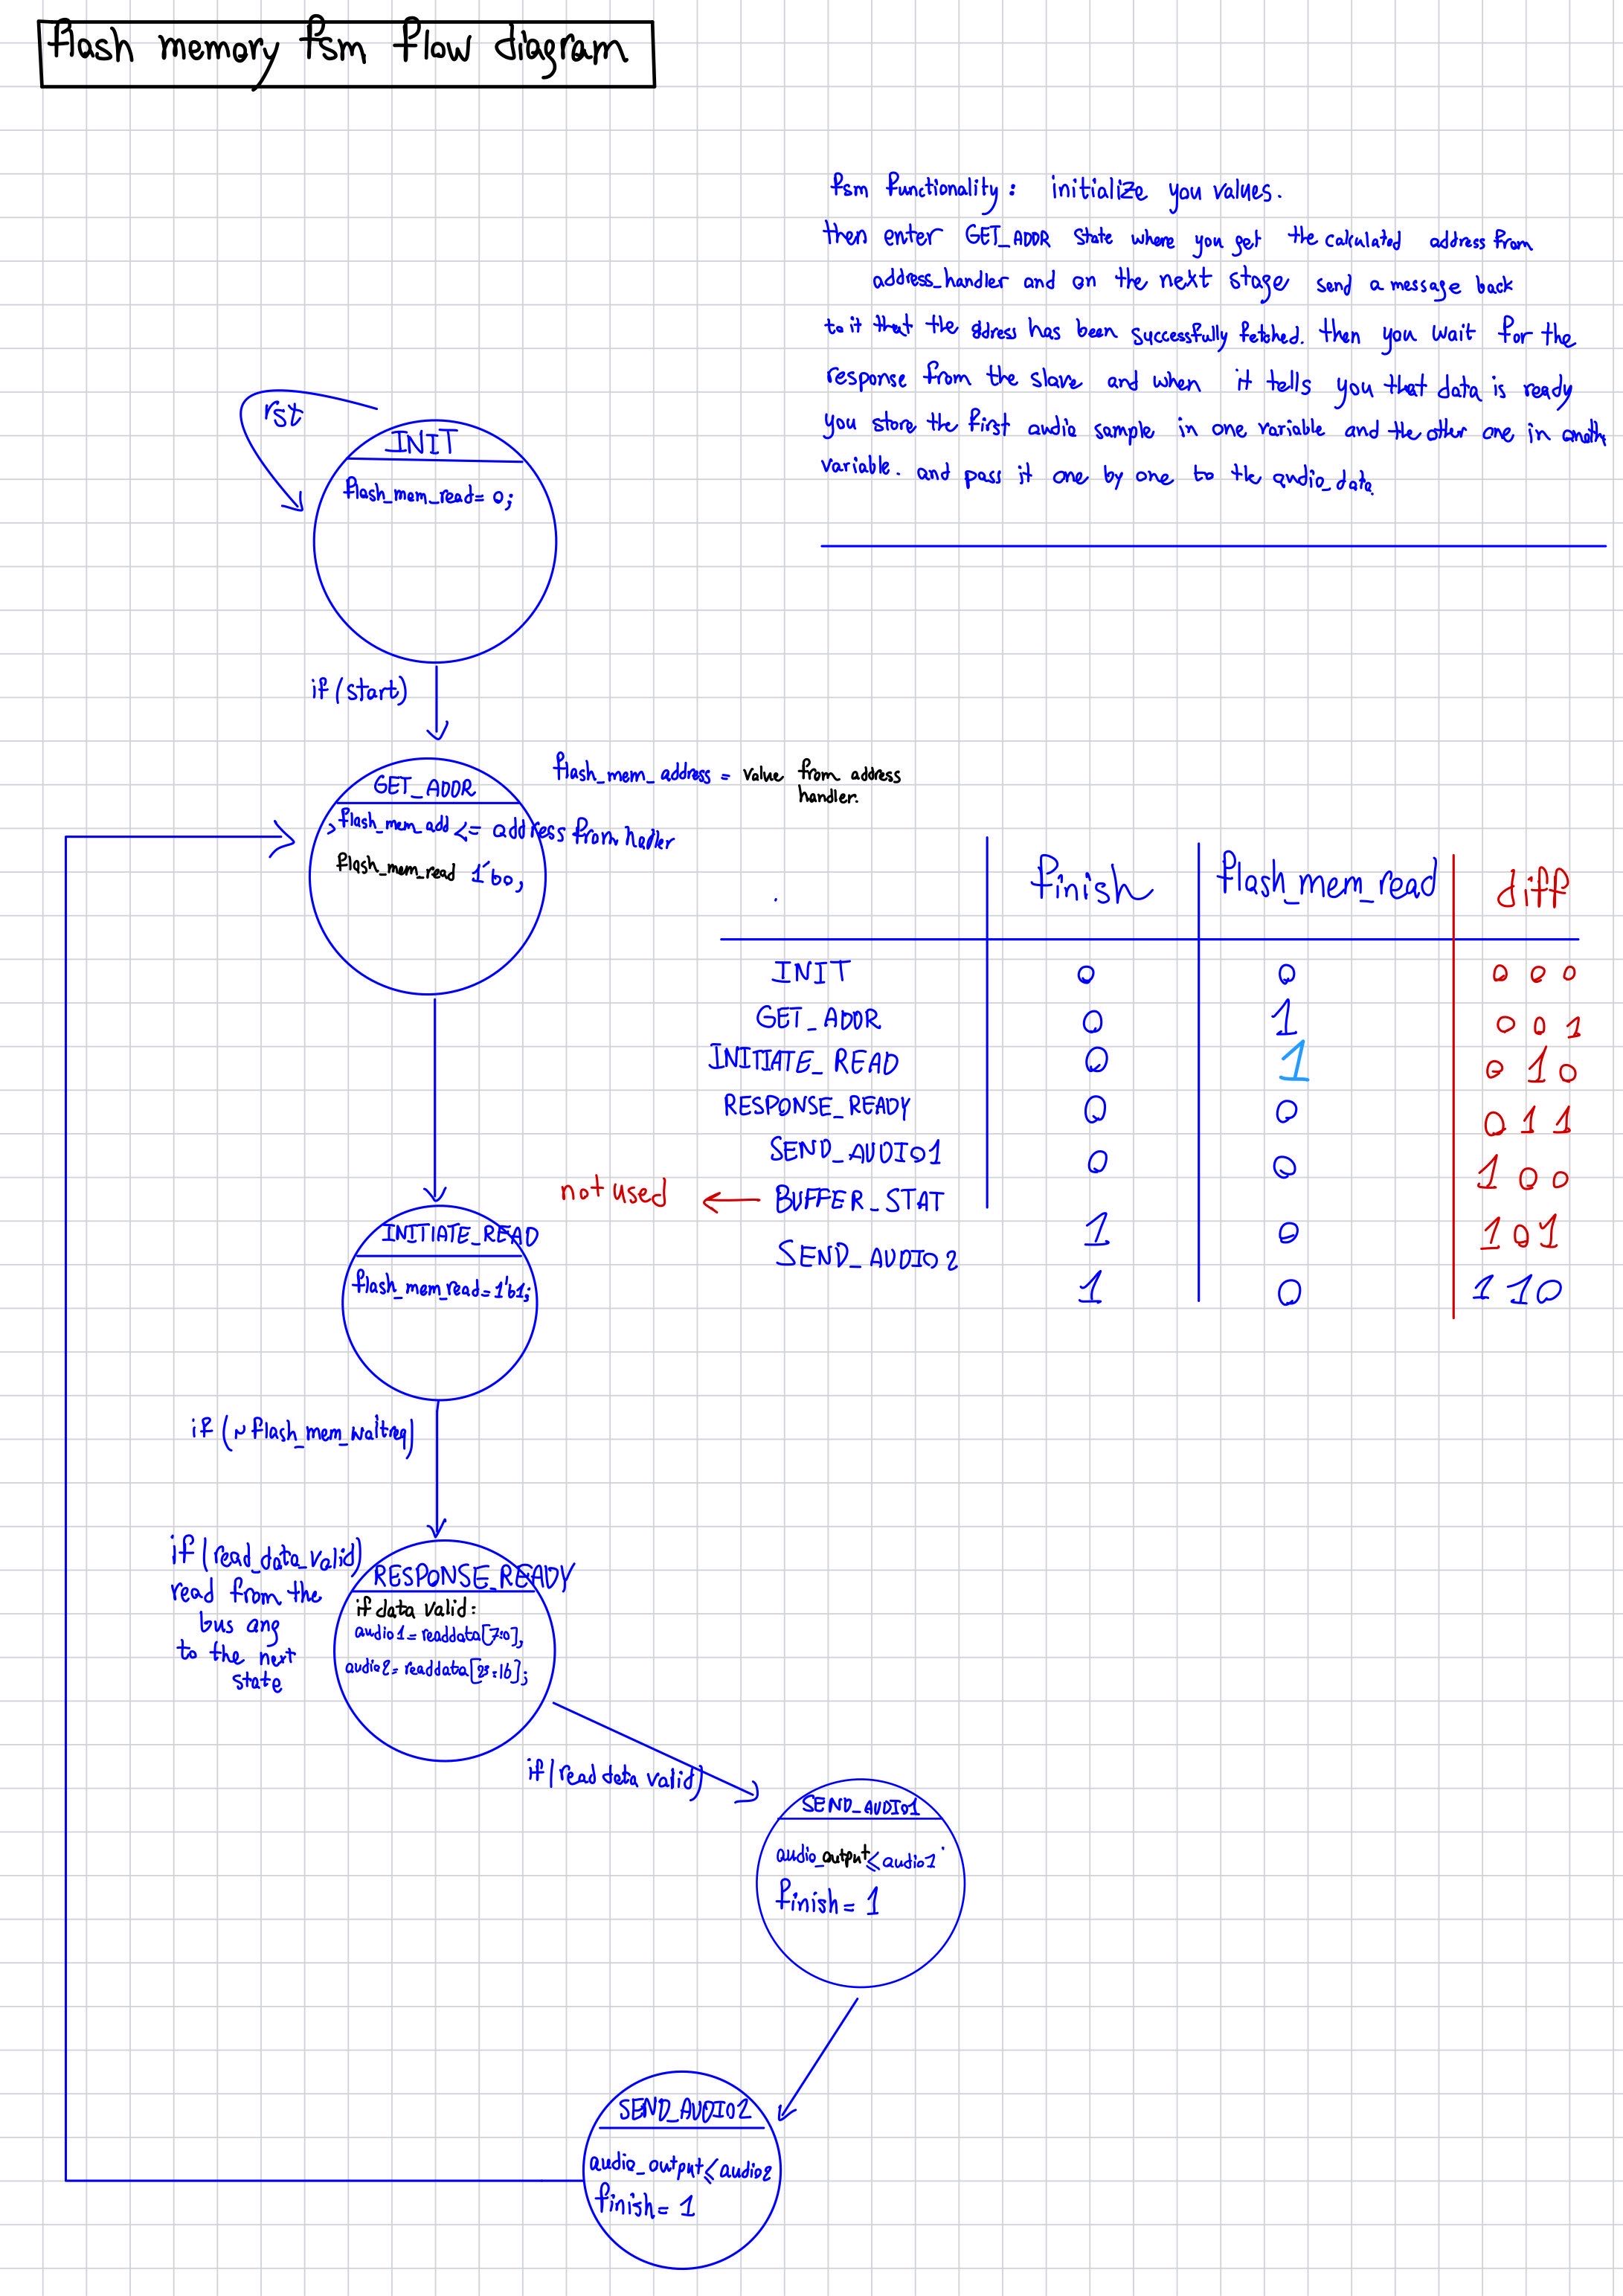 flash memory fsm flow diagram
fsm functionality: initialize you values.
then enter GET_ADDR state where you get the calculated address from
address_handler and on the next stage send a message back
to it that the ddress has been successfully fetched. then you wait for the
response from the slave and when it tells you that data is ready
you store the first audio sample in one variable and the other one in
variable. and pass it one by one to the audio_data.
rst
INIT
flash_mem_read= 0;
if (start)
GET_ADDR
flash_mem_add <= address from hadler
flash_mem_read 1'b0;
flash_mem_address = value from address
handler.
finish flash_mem_read diff
INIT 0 0 0 0 0
GET_ADDR 0 1 0 0 1
INITIATE_READ 0 1 0 1 0
RESPONSE_READY 0 0 0 1 1
SEND_AUDIO1 0 0 1 0 0
not used ← BUFFER_STAT 1 0 1 0 1
SEND_AUDIO2 1 0 1 1 0
INITIATE_READ
flash_mem_read=1'b1;
if (~flash_mem_waitreq)
if (read_data_valid)
read from the
bus ang
to the next
state
RESPONSE_READY
if data valid:
audio1=readdata[7:0],
audio2=readdata[23:16];
if (read data valid)
SEND_AUDIO1
audio_output<=audio1
finish= 1
SEND_AUDIO2
audio_output<=audio2
finish= 1